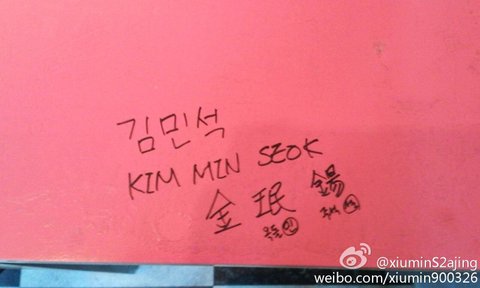 김민석
KIM MIN SEOK
金 珉 錫
옥돌 민 주석 석
@xiuminS2ajing
weibo.com/xiumin900326